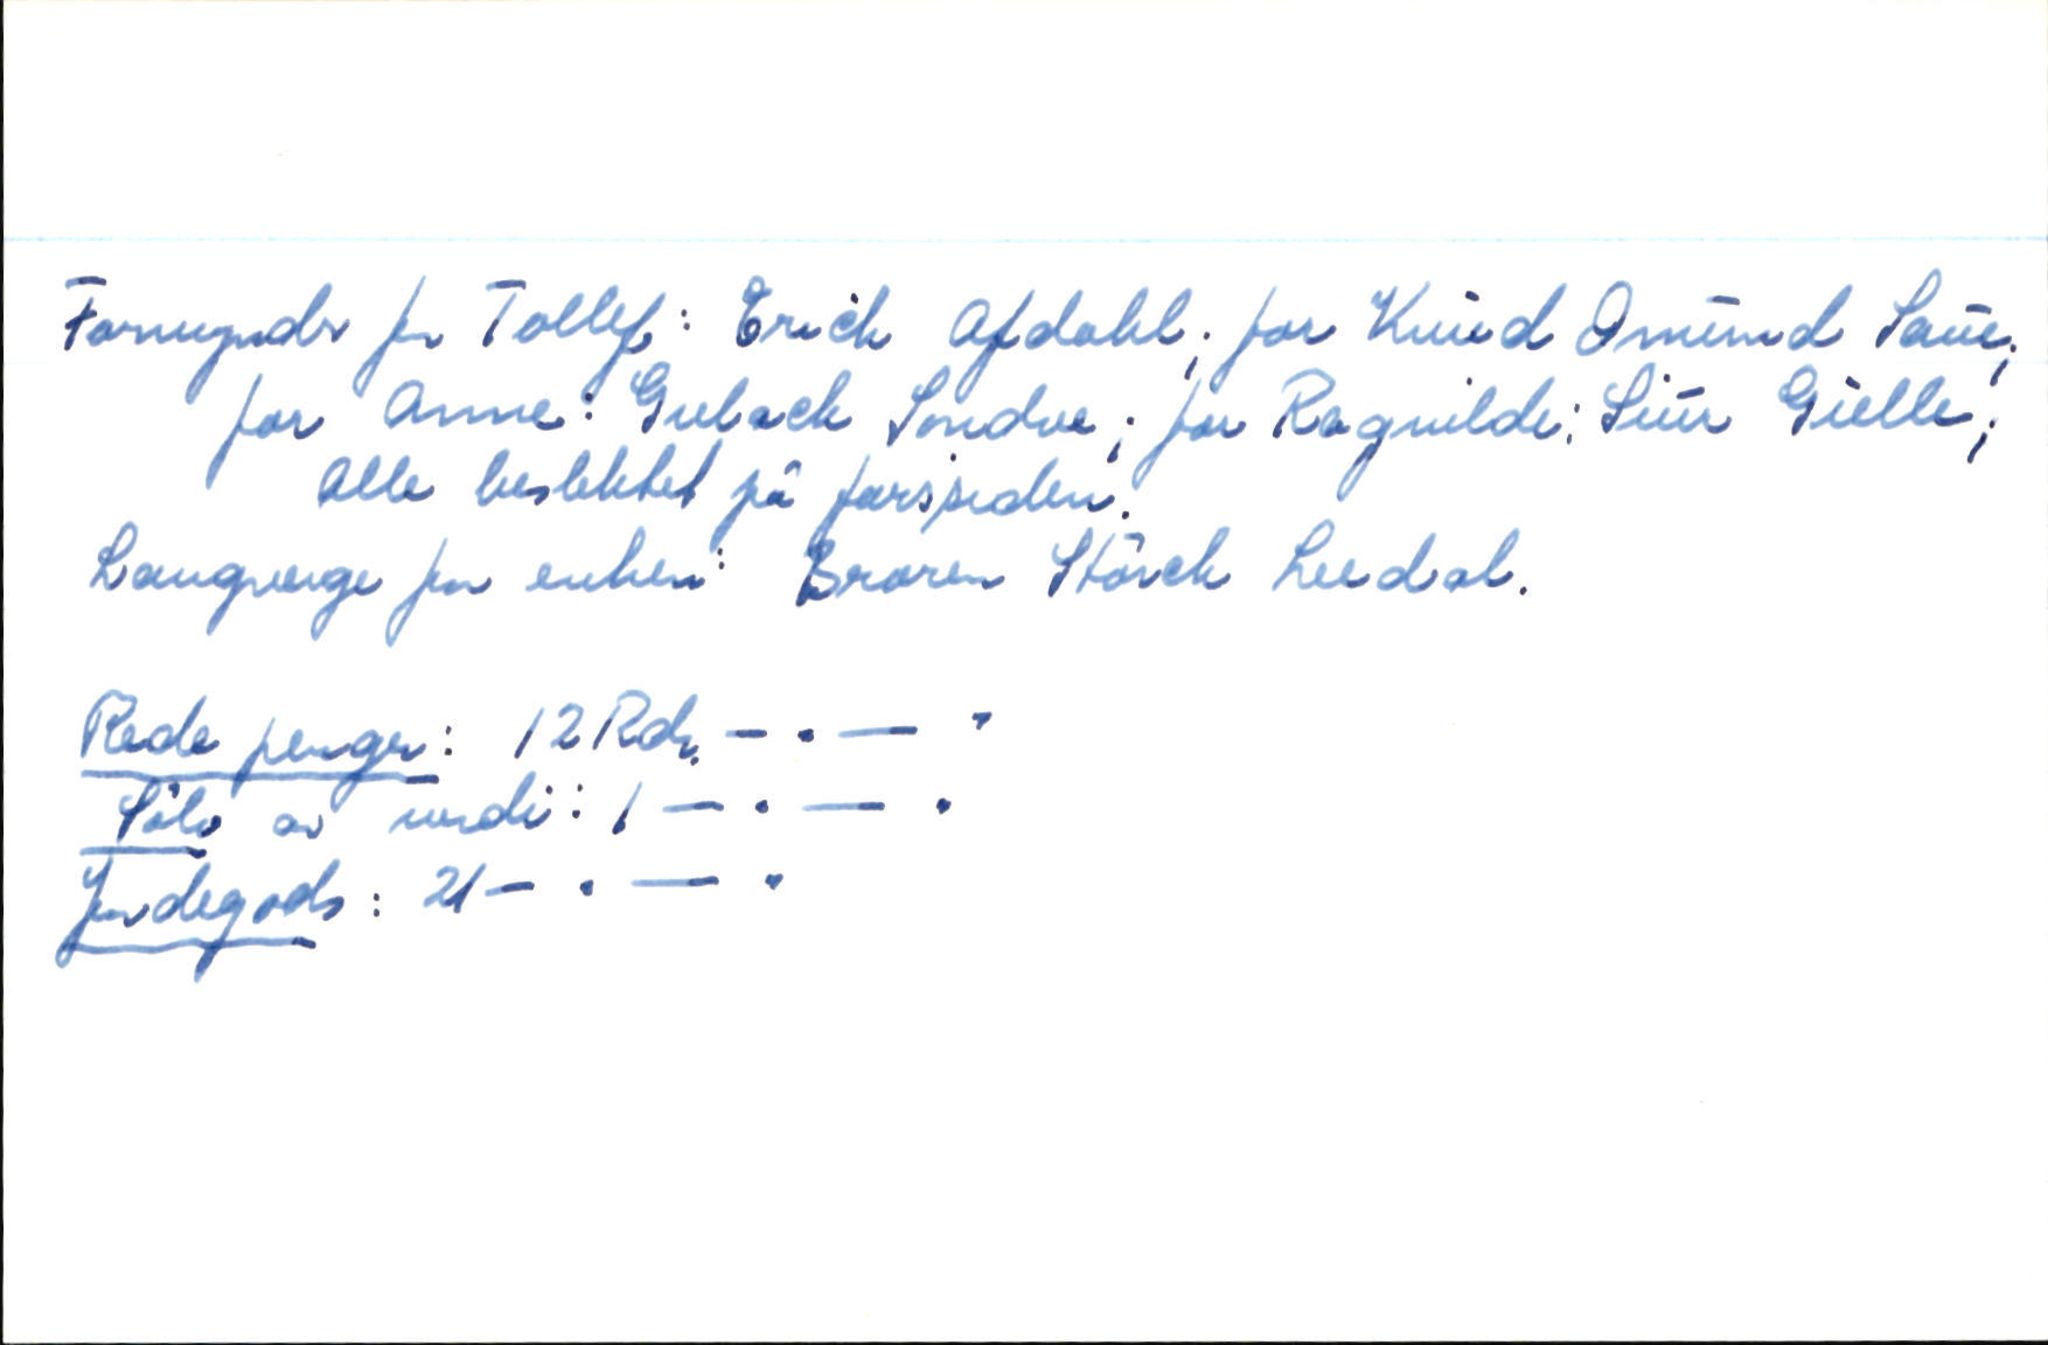 Formynder for Tollef: Erich Afdahl; for Knud Omund Saue;
for Anne: Gulack Sondve; for Ragnilde: Siur Gielle;
Alle beslektet på farssiden.
Laugverge for enken: Broren Störck Leedal.
Rede penger: 12 Rdr. - . - "
Sölv av verdi: 1 - . - .
Jndegods: 21 - . - "